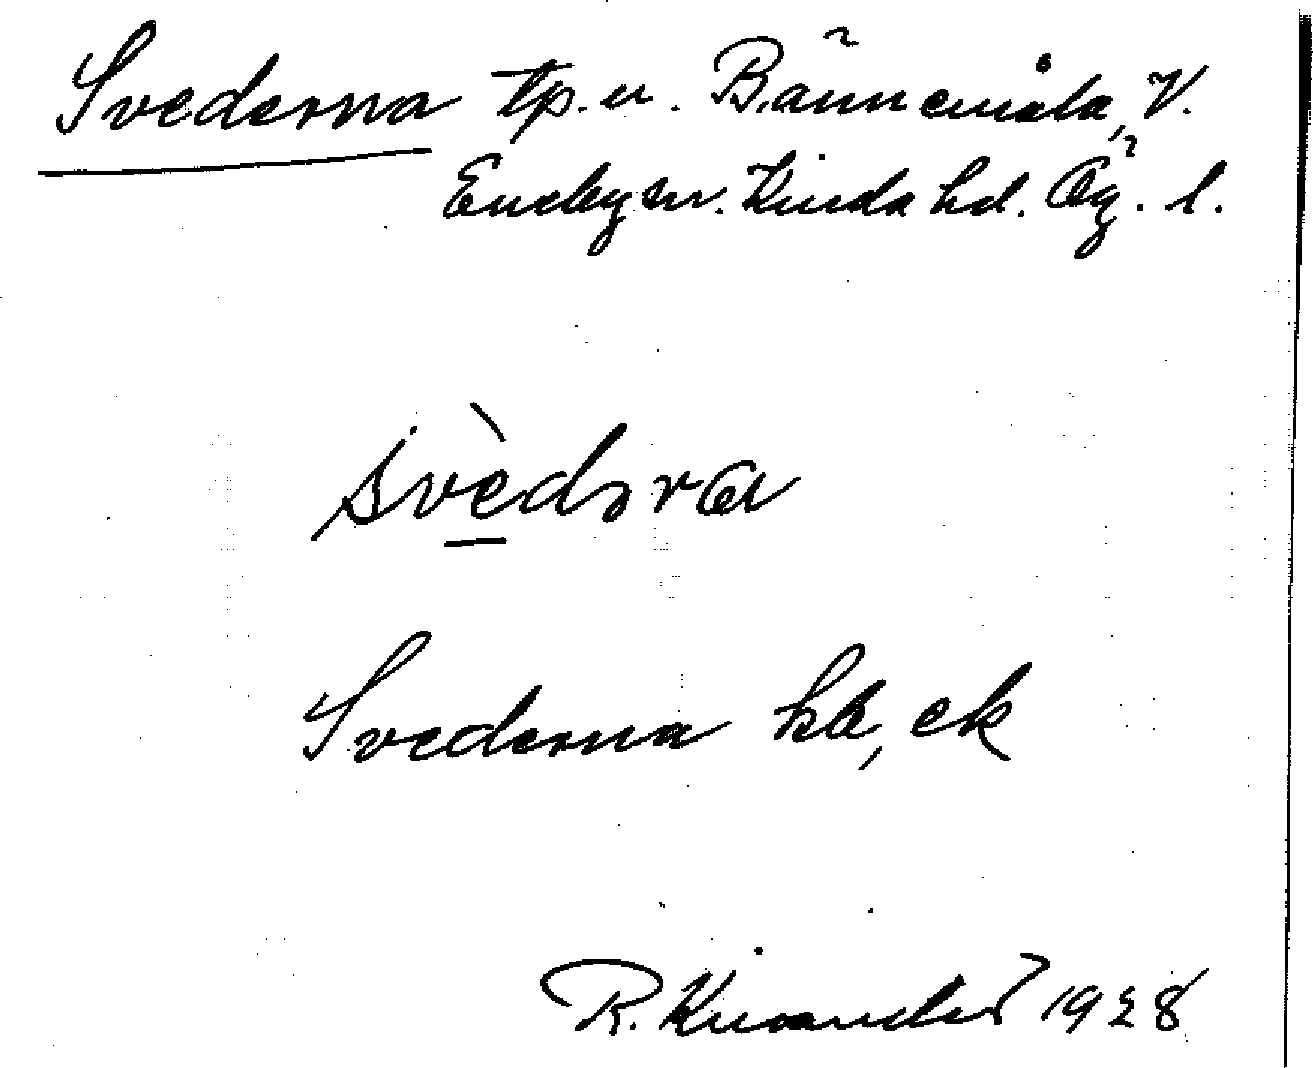 Svederna tp. u. Bännemåla, V.
Eneby sn. Kinda hd. Ög. l.
svèdɔra
Svederna ha, ek
R. Kinander 1928